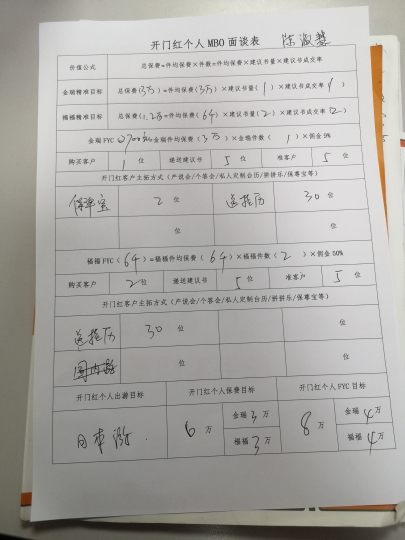 开门红个人 MBO 面谈表 陈淑慧
价值公式 总保费=件均保费×件数=件均保费×建议书量×建议书成交率
金瑞精准目标 总保费(3万)=件均保费(3万)×建议书量(1)×建议书成交率(1)
福福精准目标 总保费(1.2万)=件均保费(6千)×建议书量(2)×建议书成交率
金瑞 FYC 2700=金瑞件均保费(3万)×金瑞件数(1)×佣金 9%
购买客户 1 位 递送建议书 5 位 准客户 5 位
开门红客户主拓方式(产说会/个答会/私人定制台历/拼拼乐/保尊宝等)
保尊宝 2 位 送挂历 30 位
位 位
福福 FYC(6千)=福福件均保费(6千)×福福件数(2)×佣金 50%
购买客户 2 位 递送建议书 5 位 准客户 5 位
开门红客户主拓方式(产说会/个答会/私人定制台历/拼拼乐/保尊宝等)
送挂历 30 位 位
位 位
开门红个人出游目标 开门红个人保费目标 开门红个人 FYC 目标
日本游. 6 万 金瑞 3 万 8 万 金瑞 4 万
福福 3 万 福福 4 万